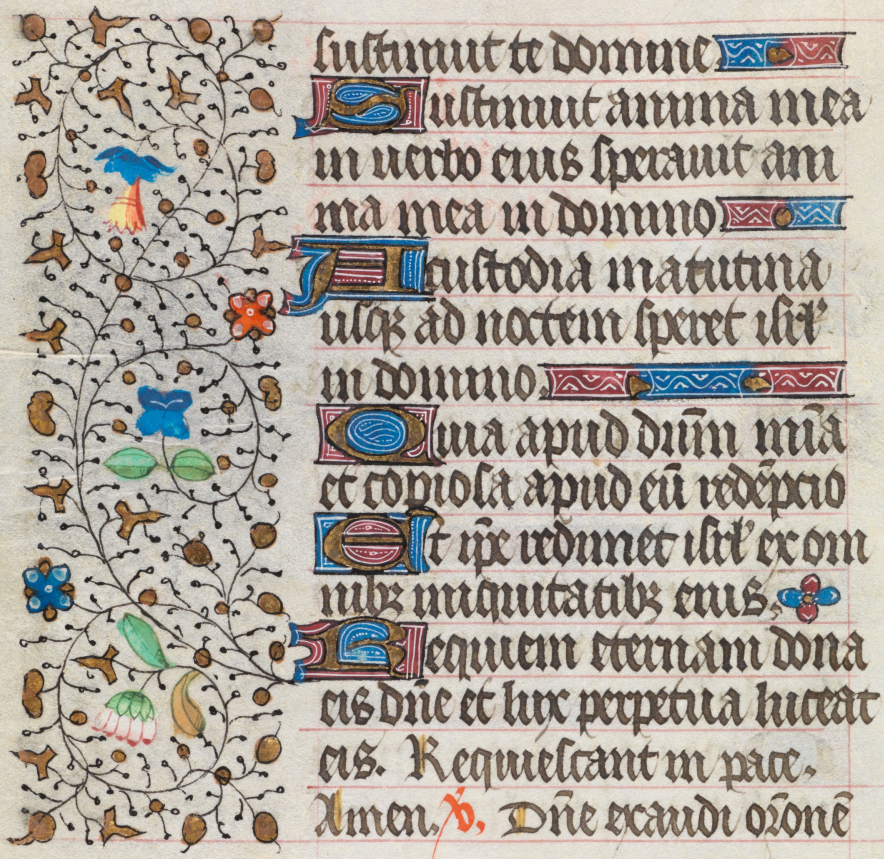 sustinuit te domine
Sustinuit anima mea
in uerbo eius sperauit ani
ma mea in domino
A custodia matutina
usqꝫ ad noctem speret isrl̛
in domino.
Quia apud dnm̄ mīa
et copiosa apud eū redēpcio
Et ip̄e redimet isrl̛ ex om
nibꝫ iniquitatibꝫ eius.
Requiem eternam dona
eis dn̄e et lux perpetua luceat
eis. Requiescant in pace.
Amen. ℣. Dn̄e exaudi orōnē